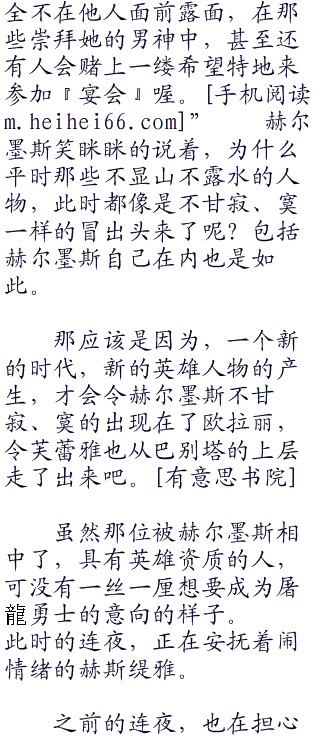 全不在他人面前露面，在那
些崇拜她的男神中，甚至还
有人会赌上一缕希望特地来
参加『宴会』喔。[手机阅读
m.heihei66.com]”　　赫尔
墨斯笑眯眯的说着，为什么
平时那些不显山不露水的人
物，此时都像是不甘寂、寞
一样的冒出头来了呢？包括
赫尔墨斯自己在内也是如
此。
　　那应该是因为，一个新
的时代，新的英雄人物的产
生，才会令赫尔墨斯不甘
寂、寞的出现在了欧拉丽，
令芙蕾雅也从巴别塔的上层
走了出来吧。[有意思书院]
　　虽然那位被赫尔墨斯相
中了，具有英雄资质的人，
可没有一丝一厘想要成为屠
龍勇士的意向的样子。
此时的连夜，正在安抚着闹
情绪的赫斯缇雅。
　　之前的连夜，也在担心